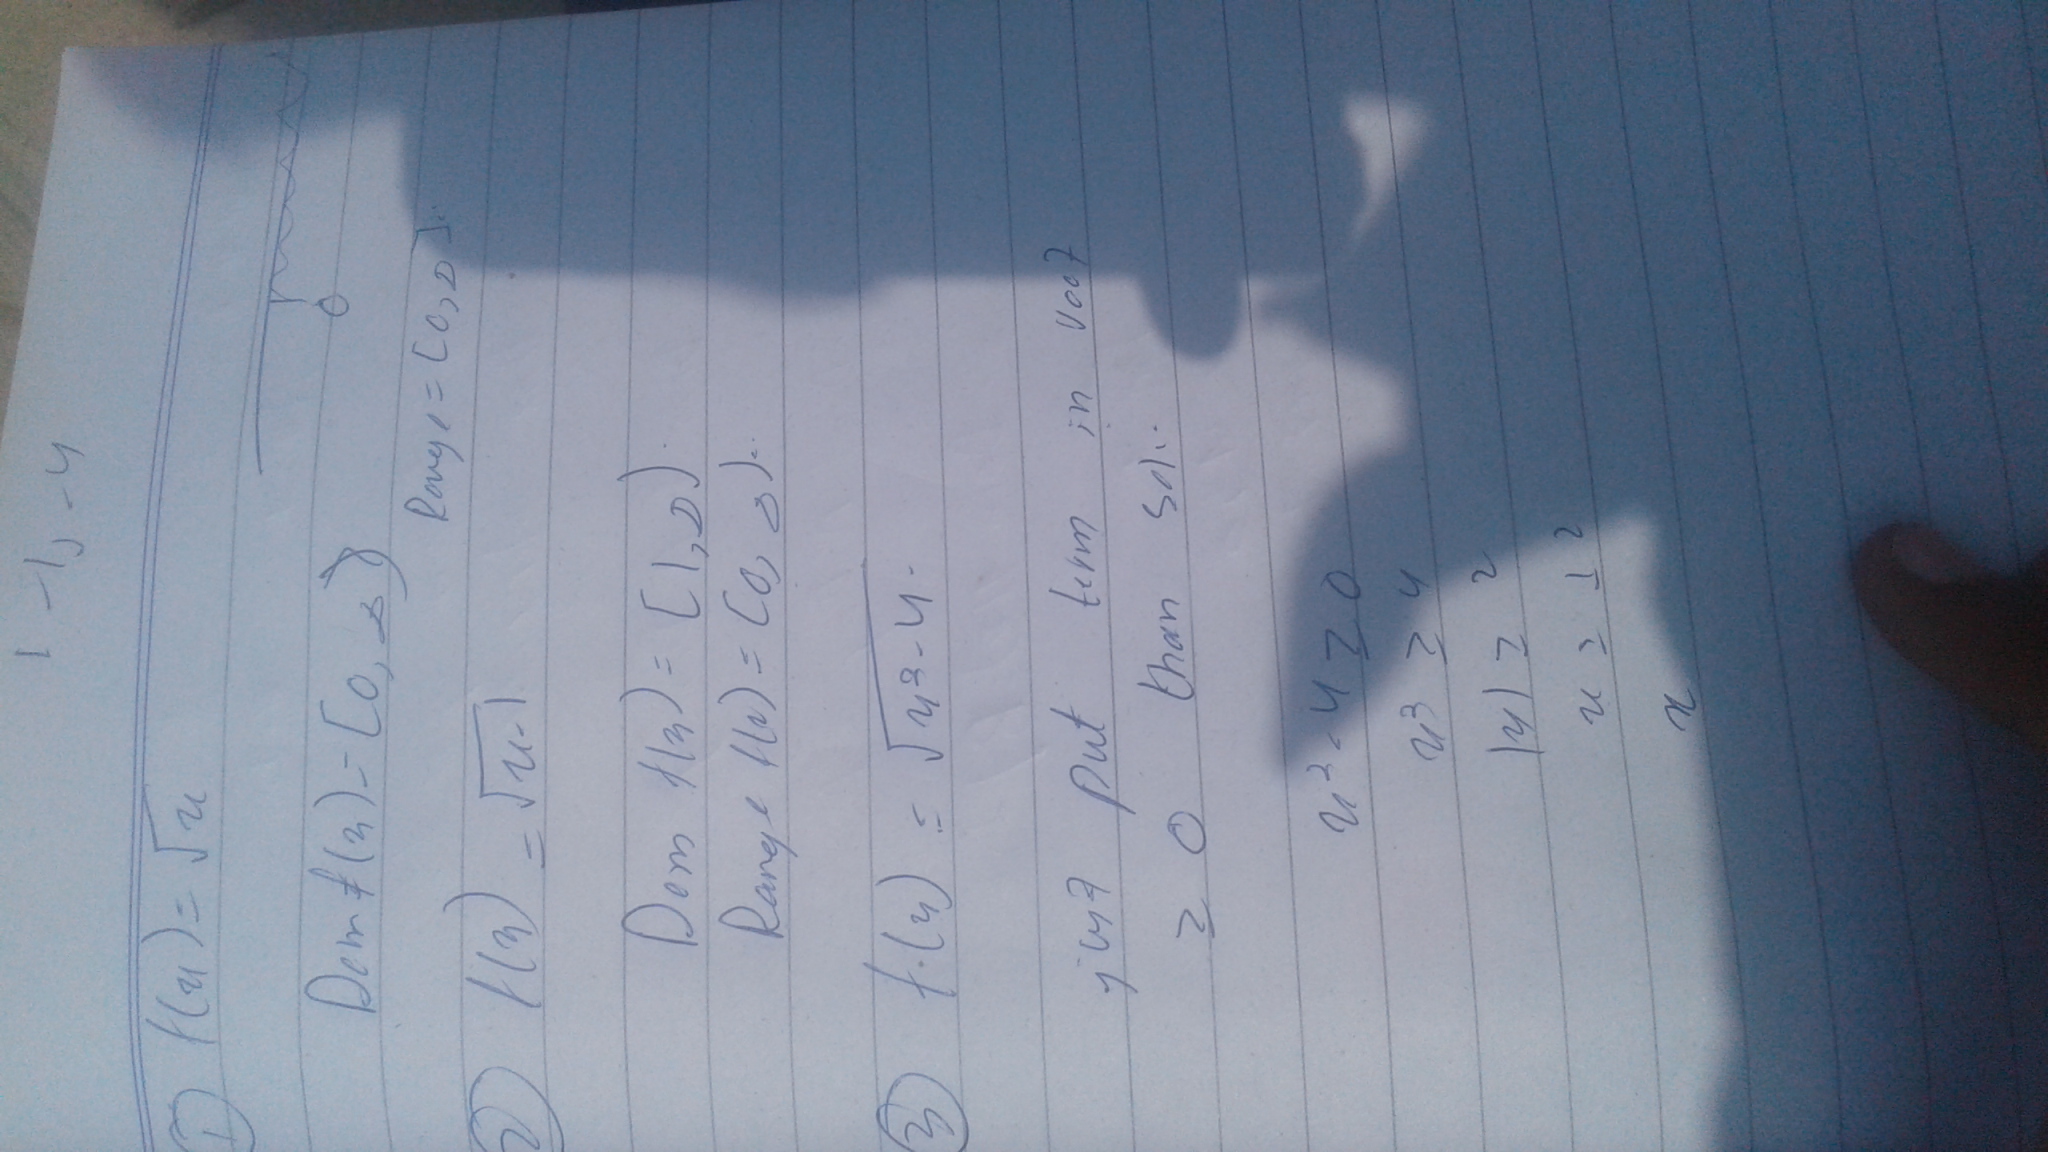 1 -1, -4
① f(x) = √x
0
Dom f(x) = [0, ∞)
Range = [0, ∞]
② f(x) = √x-1
Dom f(x) = [1, ∞).
Range f(x) = [0, ∞)..
③ f.(x) = √x²-4.
just put term in root
≥ 0 than sol..
x² - 4 ≥ 0
x² ≥ 4
|x| ≥ 2
x ≥ ± 2
x